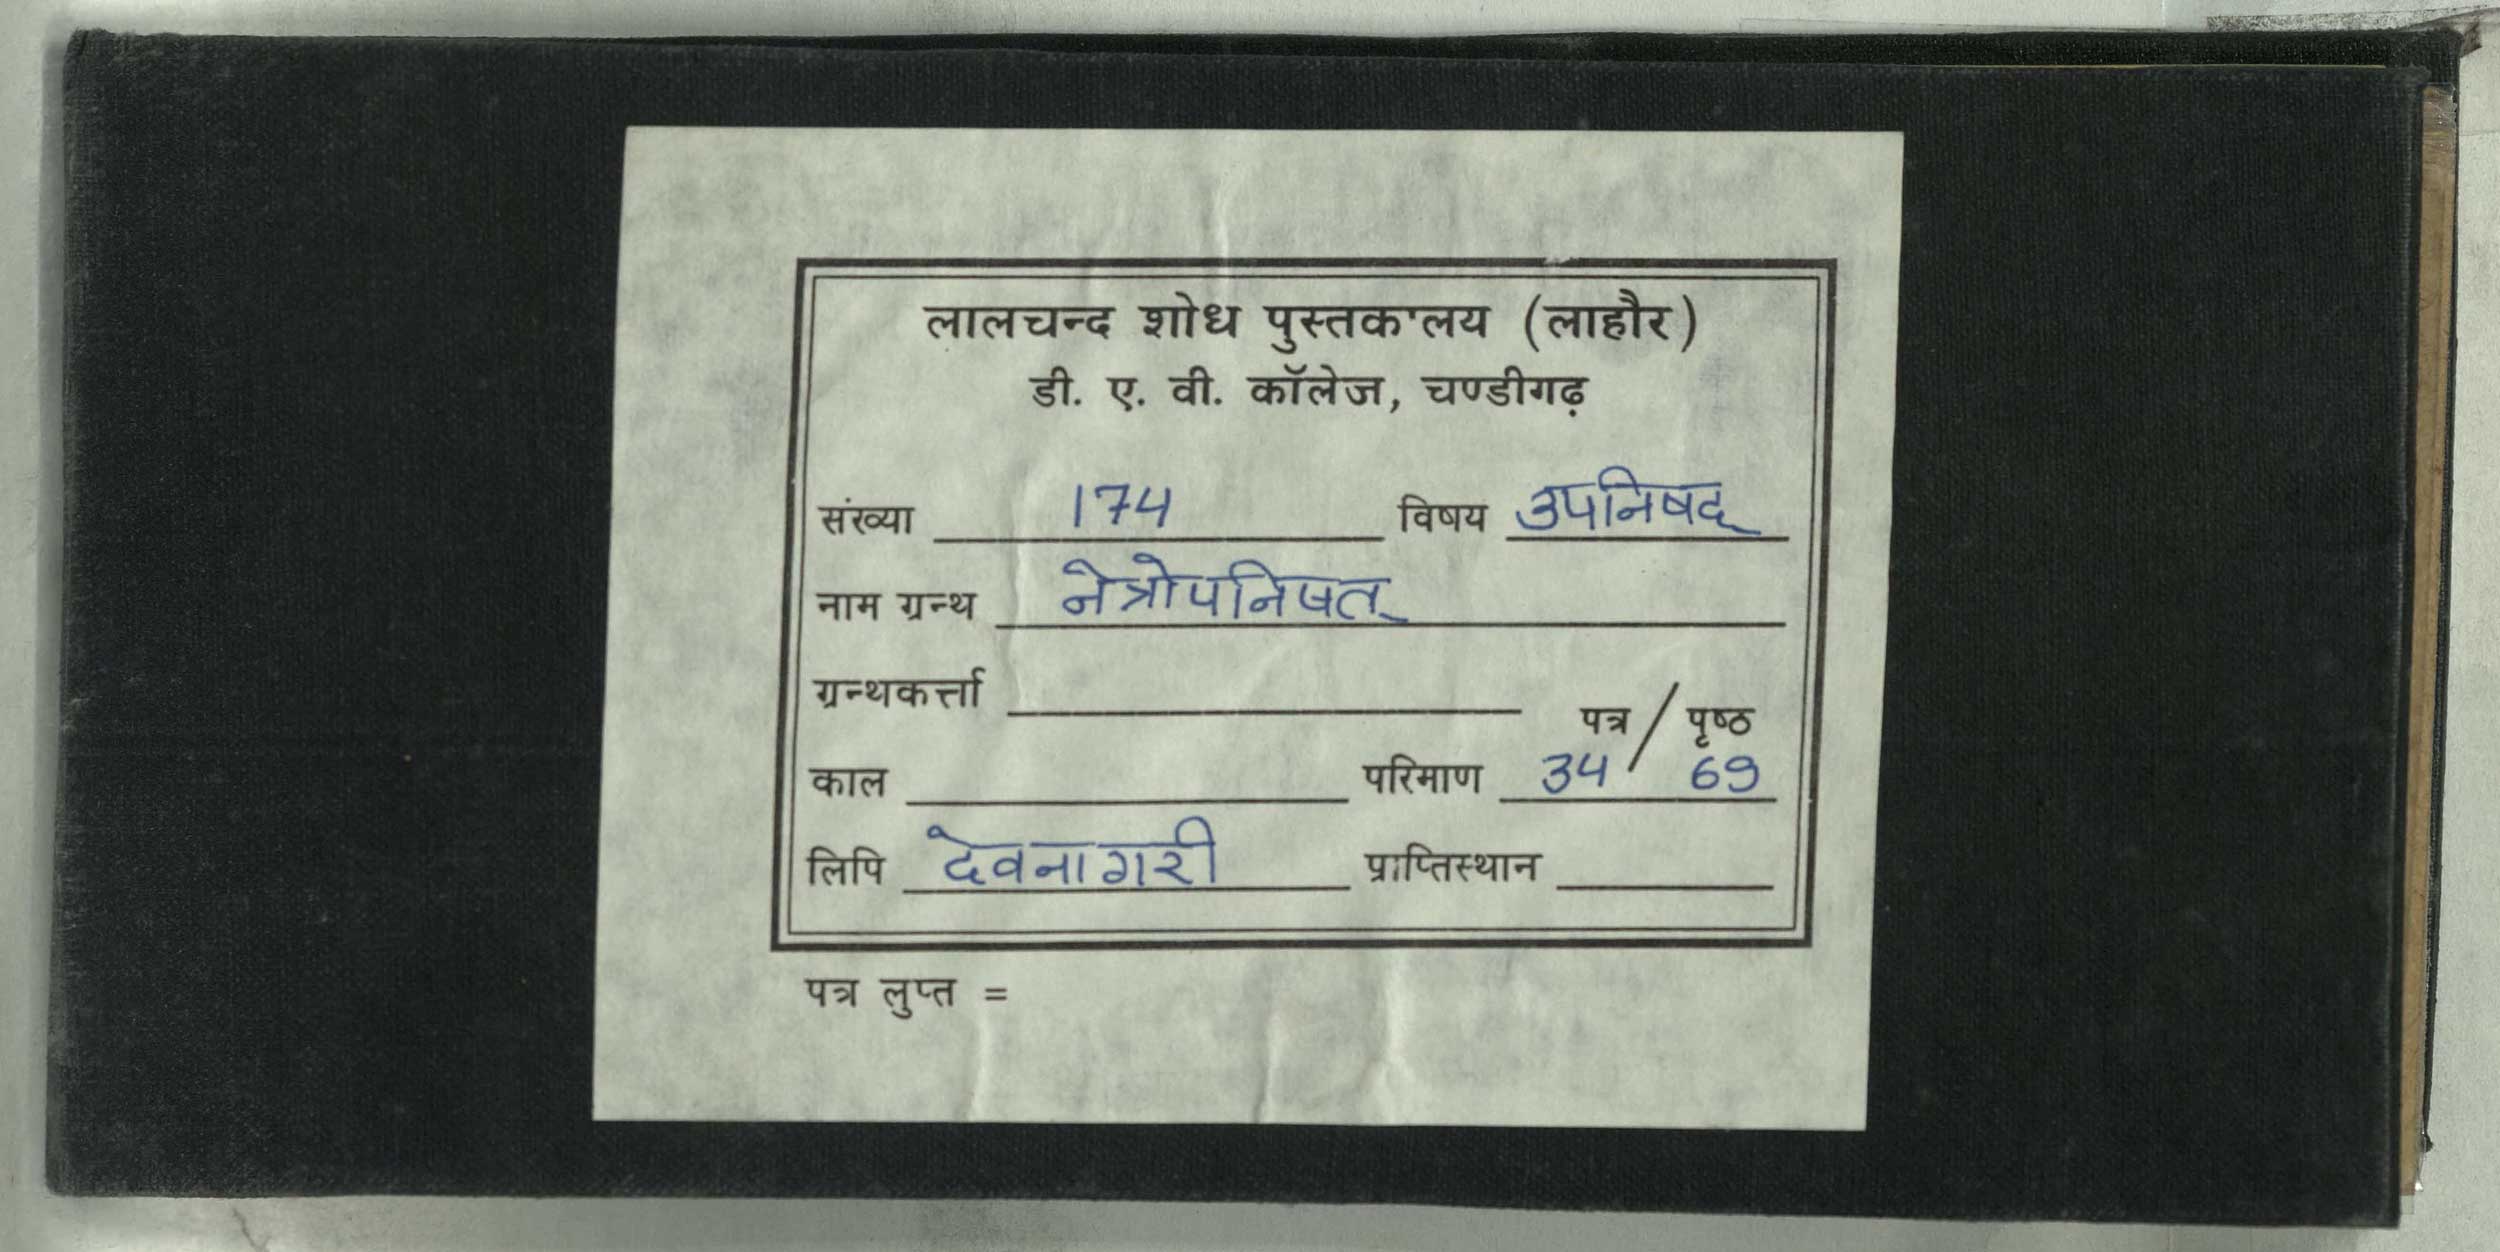 लालचन्द शोध पुस्तकालय (लाहौर)
डी. ए. वी. कॉलेज, चण्डीगढ़
संख्या 174 विषय उपनिषद्
नाम ग्रन्थ नेत्रोपनिषत्
ग्रन्थकर्त्ता
पत्र / पृष्ठ
काल परिमाण 34 / 69
लिपि देवनागरी प्राप्तिस्थान
पत्र लुप्त =